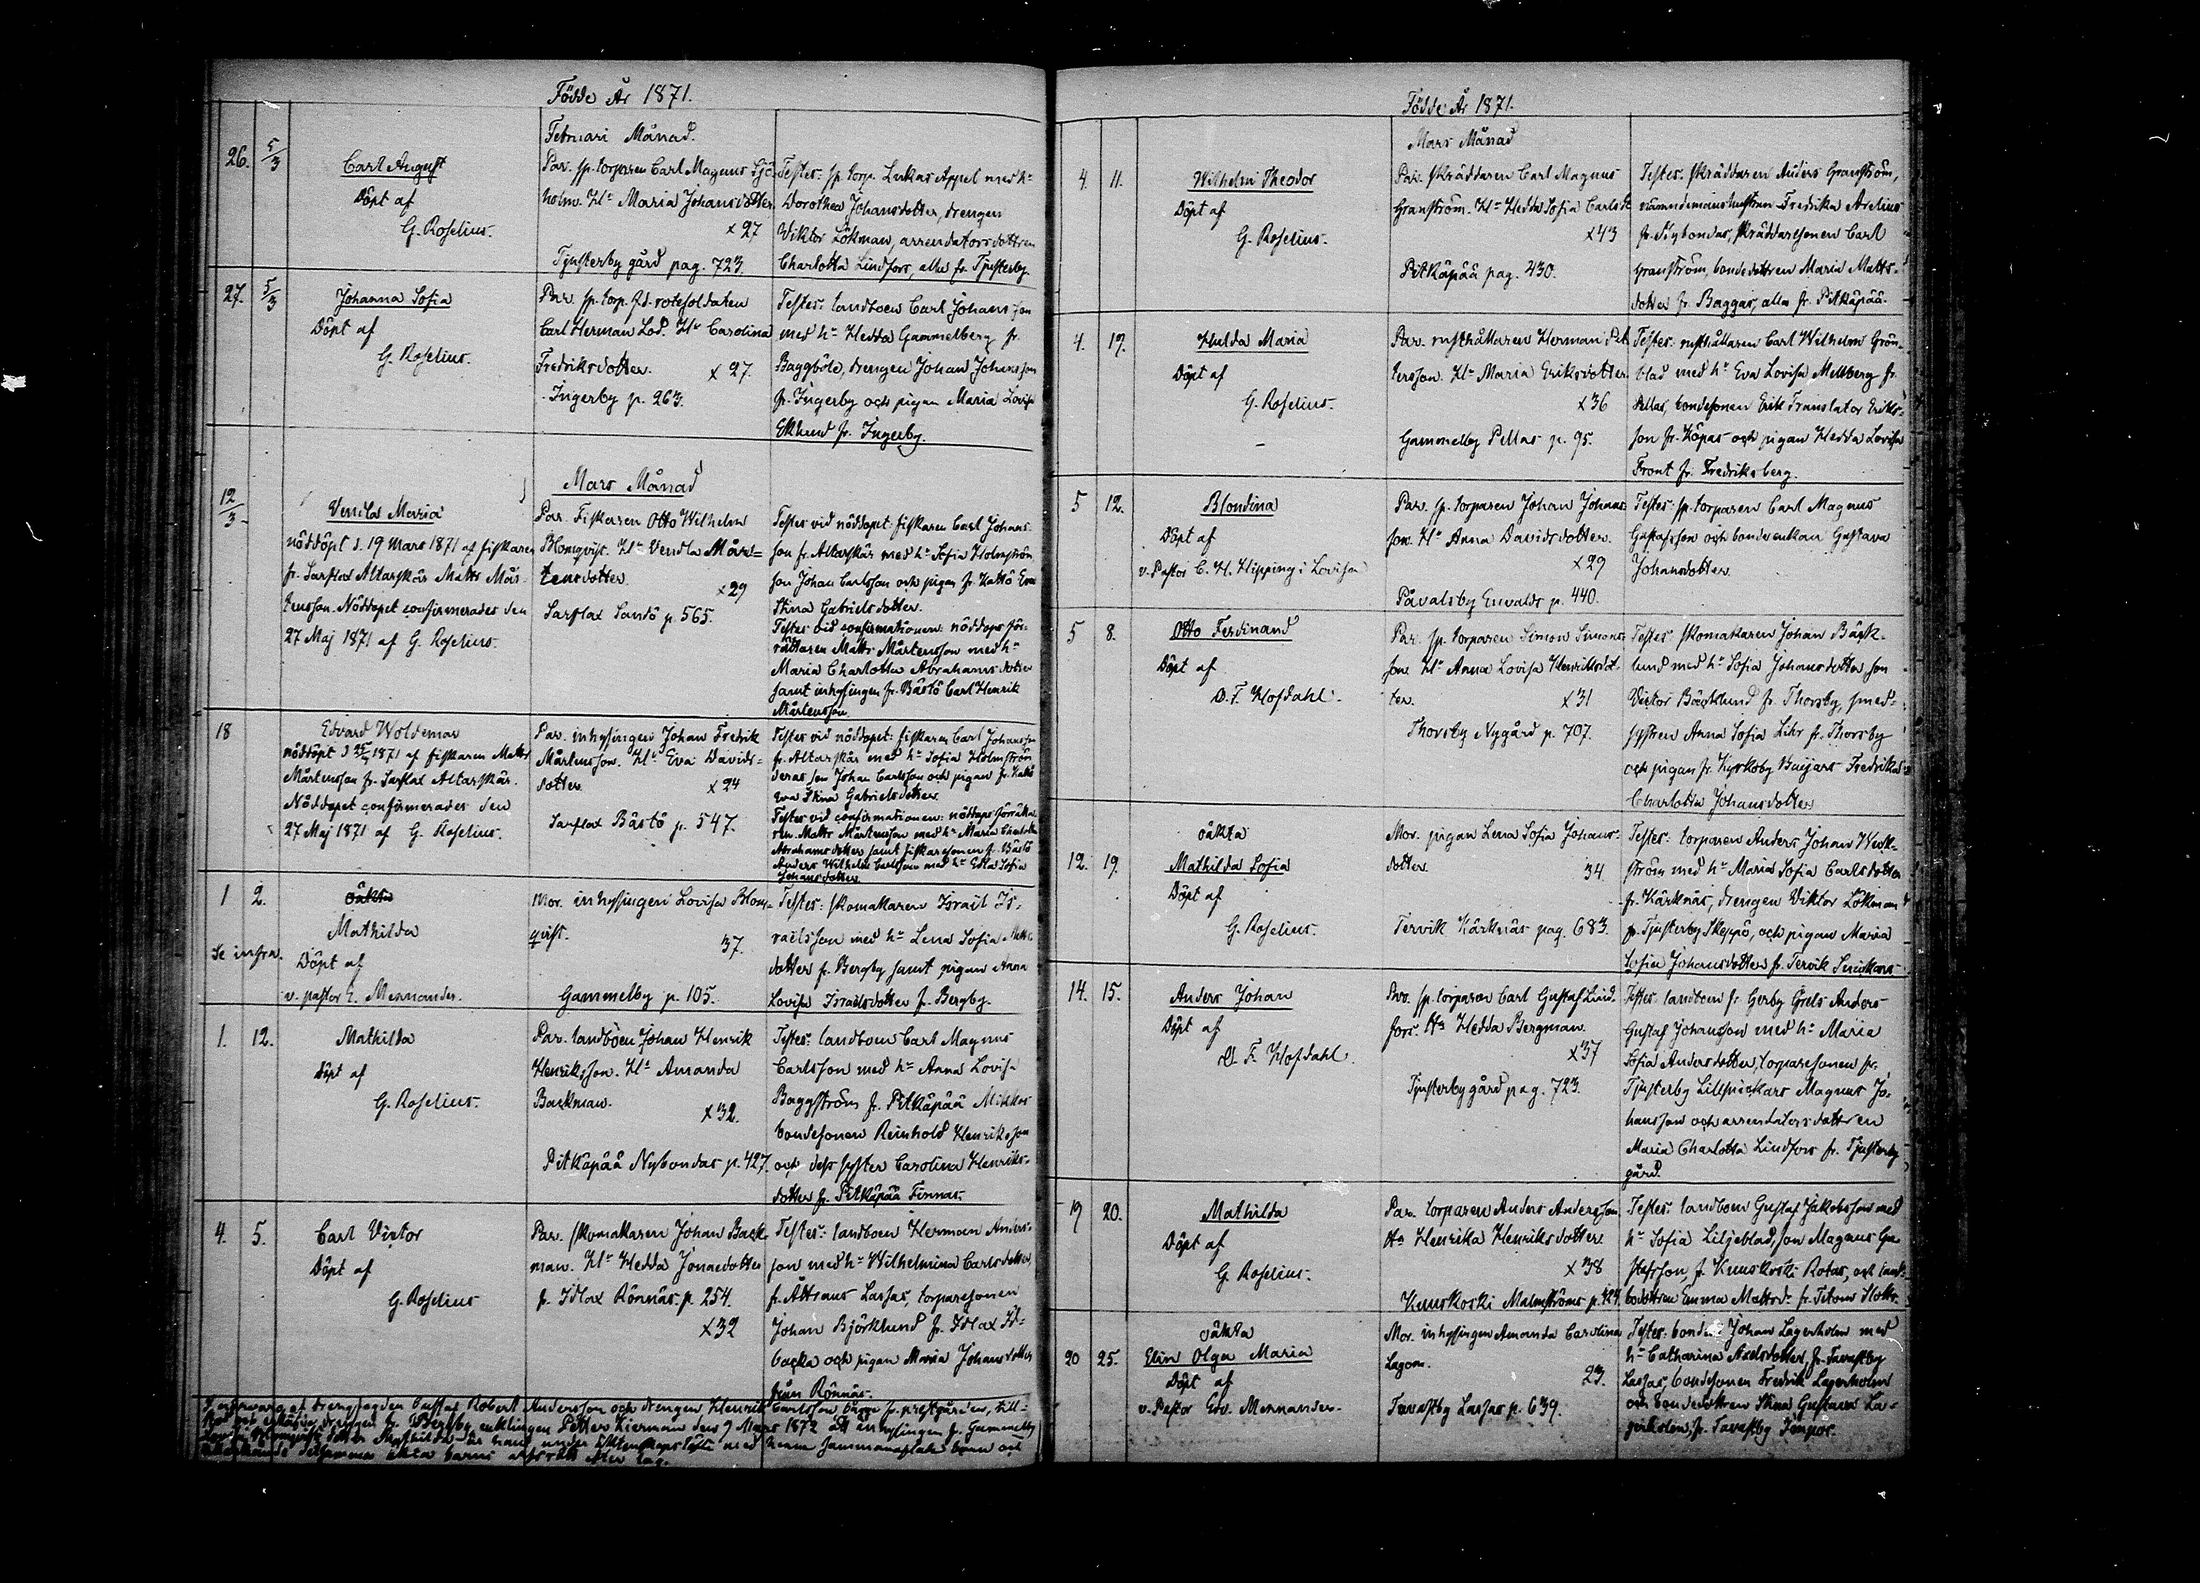 Födde År 1871.
Februari Månad.
26. 5/3
Carl August
Döpt af
G. Roselius.
Par. sp. torparen Carl Magnus Sjö-
holm. H. Maria Johansdotter
x 27
Tjusterby gård pag. 723.
Testes: sp. torp. Lukas Appel med h.
Dorothea Johansdotter, drengen
Viktor Lökman, arrendatorsdottren
Charlotta Lindfors, alla fr. Tjusterby.
27. 5/3
Johanna Sofia
Döpt af
G. Roselius.
Par. sp. torp. f.d. rotesoldaten
Carl Herman Lod. H. Carolina
Fredriksdotter.
x 27.
Ingerby p. 263.
Testes: landboen Carl Johansson
med h. Hedda Gammelberg fr.
Baggböle, drengen Johan Johansson
fr. Ingerby och pigan Maria Lovisa
Eklund fr. Ingerby.
Mars Månad
12/3
Maria
nöddöpt d. 19 Mars 1871 af fiskaren
fr. Sarflax Altarskär Matts Mår-
tensson. Nöddopet confirmerades den
27 Maj 1871 af G. Roselius.
Par. Fiskaren Otto Wilhelm
Blomqvist. H. Vendla Mår-
tensdotter.
x 29
Sarflax Sandö p. 565.
Testes vid nöddopet: fiskaren Carl Johans-
son fr. Altarskär med h. Sofia Holmström
son Johan Carlsson och pigan fr. Kattö Eva
Stina Gabrielsdotter.
Testes vid confirmationen: nöddops för-
rättaren Matts Mårtensson med h.
Maria Charlotta Abrahamsdotter
samt inhysingen fr. Båstö Carl Henrik
Mårtensson.
18
Edvard Woldemar
nöddöpt d 1871 af fiskaren Matts
Mårtensson fr. Sarflax Altarskär.
Nöddopet confirmerades den
27 Maj 1871 af G. Roselius.
Par. inhysingen Johan Fredrik
Mårtensson. H. Eva Davids-
dotter.
x 24
Sarflax Båstö p. 547.
Testes vid nöddopet: fiskaren Carl Johansson
fr. Altarskär med h. Sofia Holmström
deras son Johan Carlsson och pigan fr. Kattö
Eva Stina Gabrielsdotter.
Testes vid confirmationen: nöddops förrätta-
ren Matts Mårtensson med h. Maria Charlotta
Abrahamsdotter samt fiskaresonen fr. Båstö
Anders Wilhelm Carlsson med h. Sofia
Johansdotter.
1 2.
Se infra.
oäkta
Mathilda
Döpt af
v. pastor E. Mennander.
Mor. inhysingen Lovisa Blom-
qvist.
37.
Gammelby p. 105.
Testes: skomakaren Israel Is-
raelsson med h. Lena Sofia Matts-
dotter fr. Bergby samt pigan Anna
Lovisa Israelsdotter fr. Bergby.
1. 12.
Mathilda
Döpt af
G. Roselius.
Par. landboen Johan Henrik
Henriksson. H. Amanda
Backman.
x 32.
Pitkäpää Nybondas p. 427.
Testes: landboen Carl Magnus
Carlsson med h. Anna Lovisa
Baggström fr. Pitkäpää Mikkos
bondesonen Reinhold Henriksson
och dess syster Carolina Henriks-
dotter fr. Pitkäpää Finnas.
4. 5.
Carl Victor
Döpt af
G. Roselius
Par. skomakaren Johan Back-
man. H. Hedda Jonaedotter
fr. Idlax Rönnäs p. 254.
x 32
Testes: landboen Herman Anders-
son med h. Wilhelmina Carlsdotter,
fr. Lassas, torparesonen
Johan Björklund fr. Idlax Id-
backa och pigan Maria Johansdotter
från Rönnäs.
af drengen Gustaf Robert Andersson och drengen Henrik Carlsson
drengen fr. Bergby enklingen Petter Hierman den 9 Mars 1872 inhysingen fr. Gammelby
Födde År 1871.
Mars Månad
4. 11.
Wilhelm Theodor
Döpt af
G. Roselius.
Par. skräddaren Carl Magnus
Granström. H. Hedda Sofia Carlsd.
x 43
Pitkäpää pag. 430.
Testes: skräddaren Anders Granström,
nämndemanshustrun Fredrika Arelius
fr. Nybondas, skräddaresonen Carl
Granström, bondedottren Maria Matts-
dotter fr. Baggas, alla fr. Pitkäpää.
4. 19.
Hulda Maria
Döpt af
G. Roselius.
Par. rusthållaren Herman Pet-
tersson. H. Maria Eriksdotter
x 36
Gammelby Pellas p. 95.
Testes: rusthållaren Carl Wilhelm Grön-
blad med h. Eva Lovisa Mellberg fr.
Pellas, bondesonen Erik Translator Eriks-
son fr. Köpas och pigan Hedda Lovisa
Front fr. Fredriksberg.
5 12.
Blondina
Döpt af
v. Pastor C. H. Hipping i Lovisa
Par. sp. torparen Johan Johans-
son. H. Anna Davidsdotter.
x 29
Påvalsby Envalds p. 440.
Testes: sp. torparen Carl Magnus
Gustafsson och bondeenkan Gustava
Johansdotter
5 8.
Otto Ferdinand
Döpt af
D. F. Hofdahl.
Par. sp. torparen Simon Simons-
son H. Anna Lovisa Henriksdot-
ter.
x 31
Thorsby Nygård p. 707.
Testes: skomakaren Johan Bäck-
lund med h. Sofia Johansdotter, son
Victor Bäcklund fr. Thorsby, smed-
systren Anna Sofia Lihr fr. Thorsby
och pigan fr. Kyrkoby Baijars Fredrika
Charlotta Johansdotter
12. 19.
oäkta
Mathilda Sofia
Döpt af
G. Roselius.
Mor. pigan Lena Sofia Johans-
dotter.
34.
Tervik Kärknäs pag. 683.
Testes: torparen Anders Johan Wick-
ström med h. Maria Sofia Carlsdotter
fr. Kärknäs, drengen Viktor Lökman
fr. Tjusterby Skeppö, och pigan Maria
Sofia Johansdotter fr. Tervik
14. 15.
Anders Johan
Döpt af
D. F. Hofdahl.
Par. sp. torparen Carl Gustaf Lind-
fors. H. Hedda Bergman.
x 37
Tjusterby gård pag. 723.
Testes: landboen fr. Gerby Grels Anders
Gustaf Johansson med h. Maria
Sofia Andersdotter, torparesonen fr.
Tjusterby Magnus Jo-
hansson och arrendatorsdottren
Maria Charlotta Lindfors fr. Tjusterby
gård.
19 20.
Mathilda
Döpt af
G. Roselius.
Par. torparen Anders Andersson
H. Henrika Henriksdotter
x 38
Kuuskoski Malmströms p. 424.
Testes: landboen Gustaf Jakobsson med
h. Sofia Liljeblad, son Magnus Gu-
stafsson, fr. Kuuskoski Rotas, och land-
bodottren Emma Mattsd. fr.
20 25.
oäkta
Elin Olga Maria
Döpt af
v. Pastor Edv. Mennander.
Mor. inhysingen Amanda Carolina
Lagom.
23.
Tavastby Lassas p. 639.
Testes: bonden Johan Lagerholm med
h. Catharina Axelsdotter, fr. Tavastby
Lassas, bondesonen Fredrik Lagerholm
och bondedottren Stina Gustava La-
gerholm, fr. Tavastby Jompas.